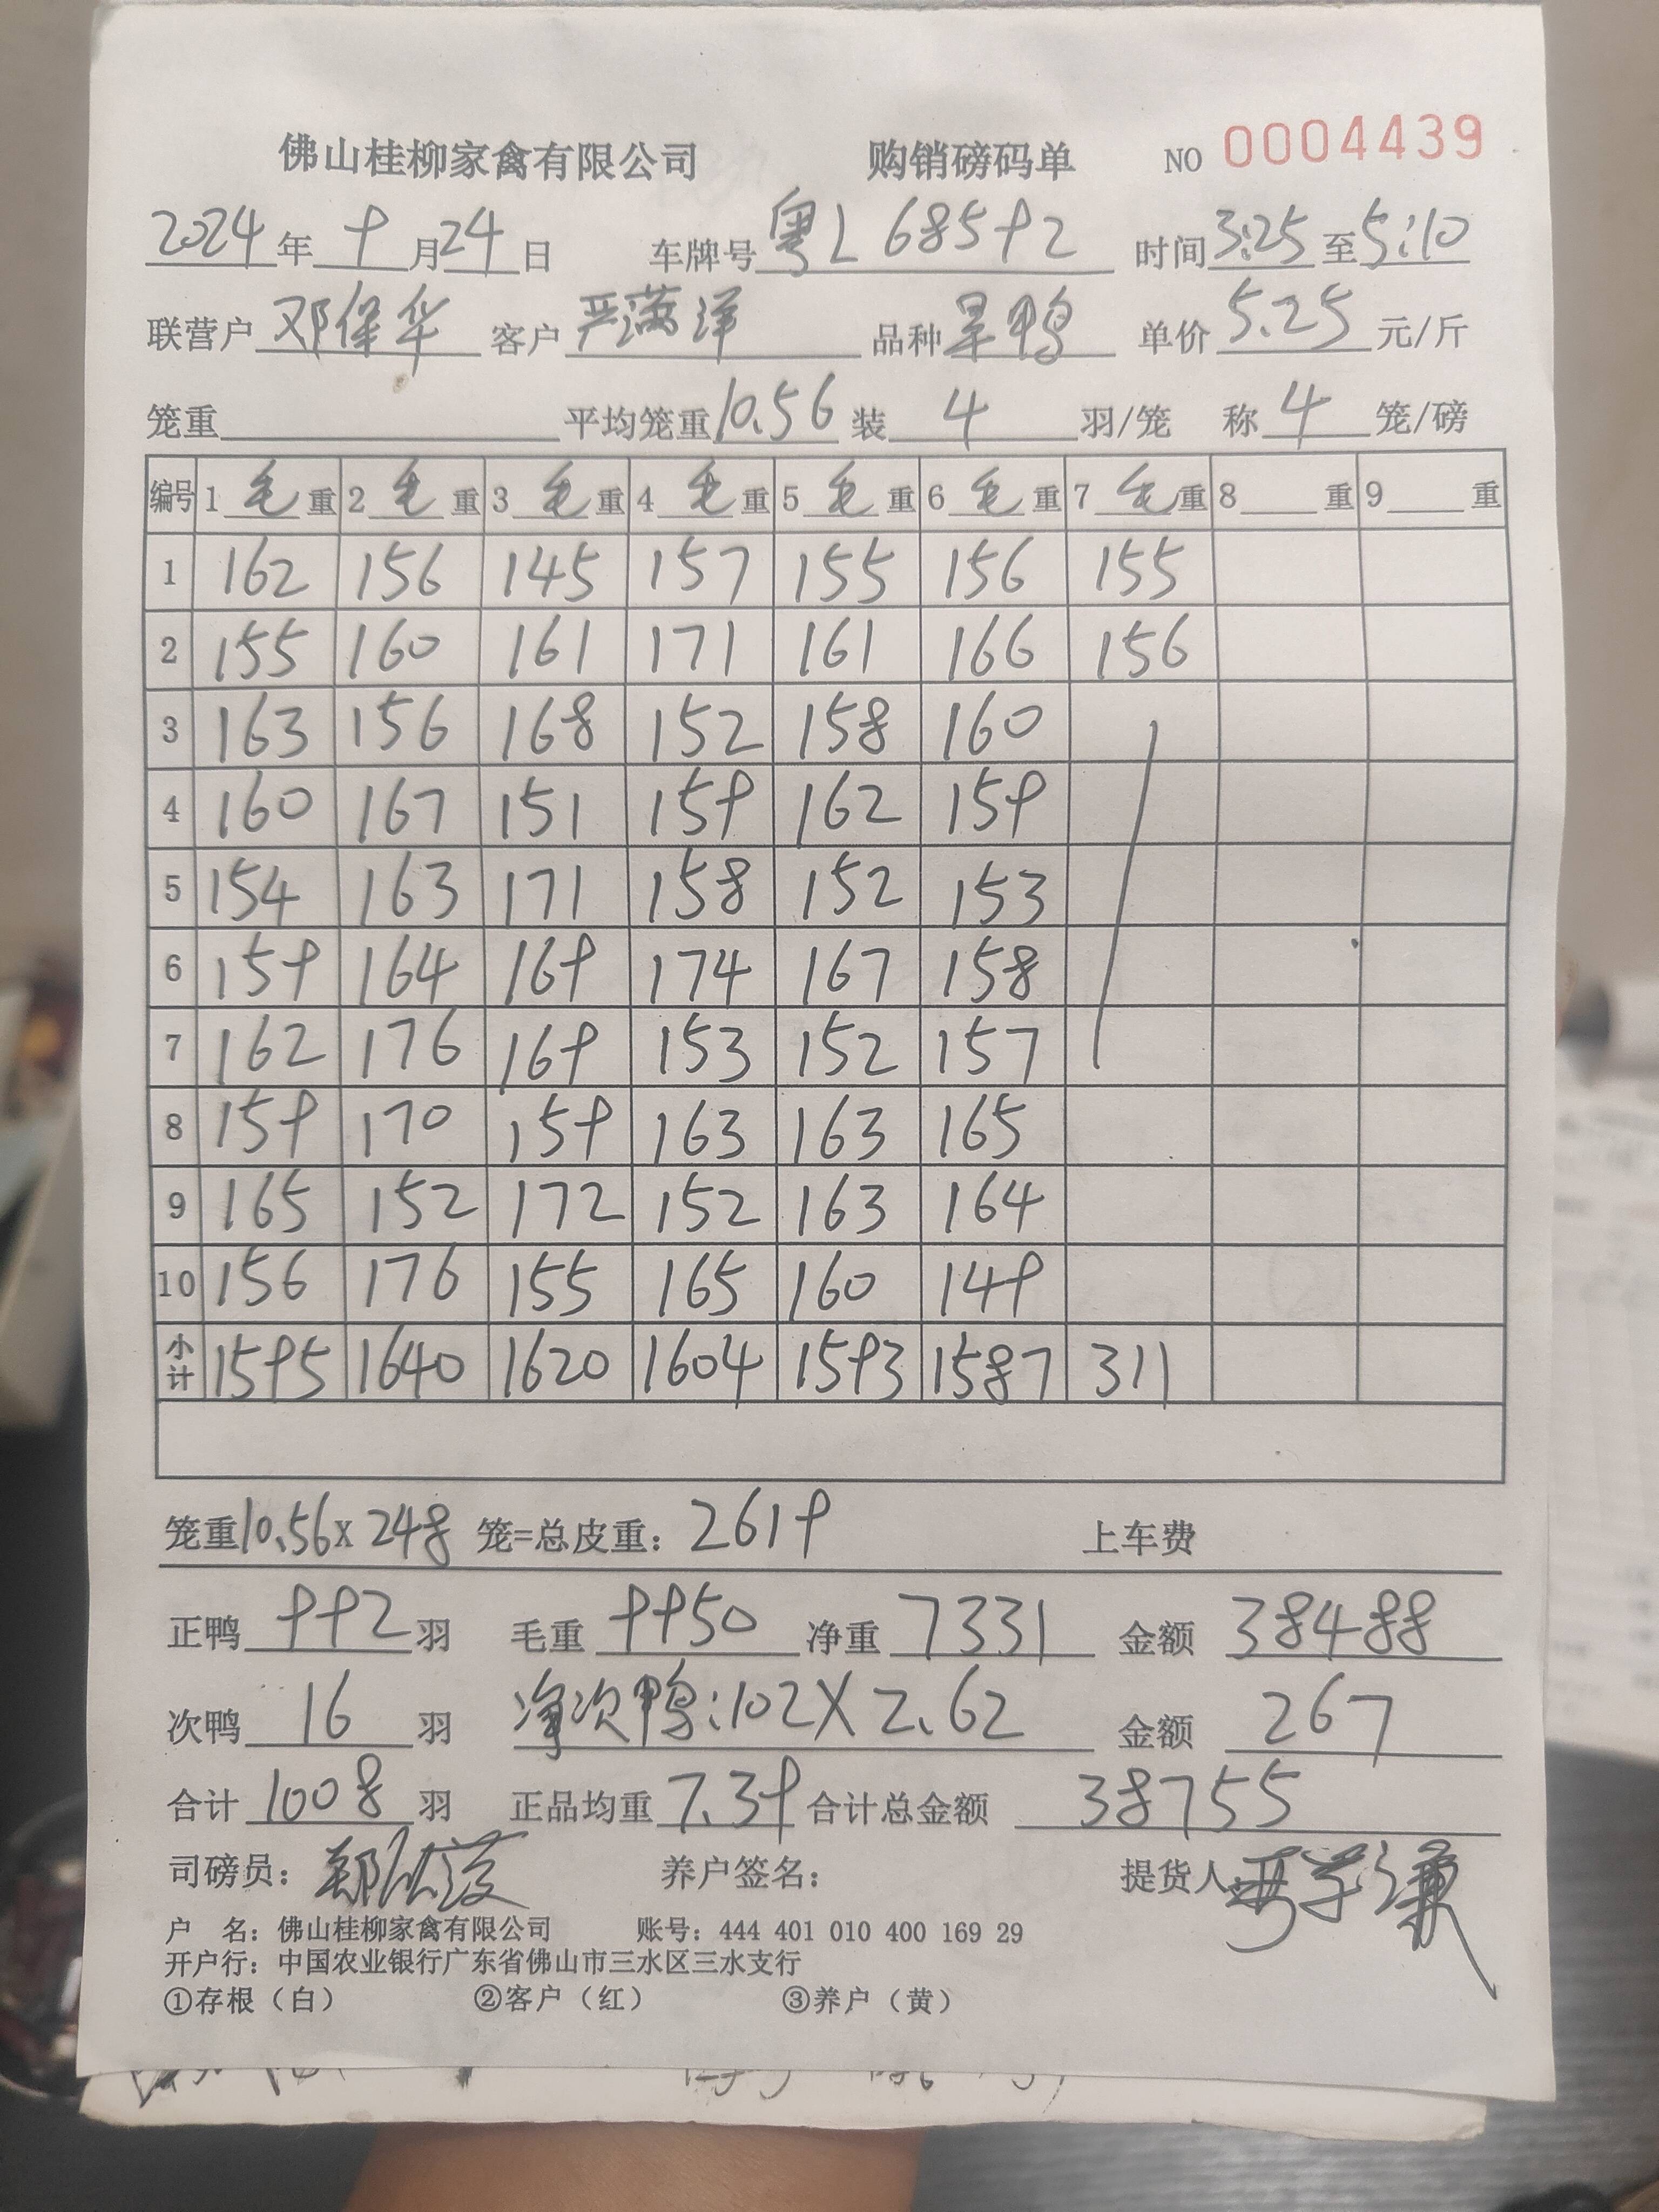 佛山桂柳家禽有限公司 购销磅码单 NO 0004439
2024年9月24日 车牌号粤L 68592 时间3:25至5:10
联营户邓保华 客户严满洋 品种旱鸭 单价5.25元/斤
笼重 平均笼重10.56 装4羽/笼 称4笼/磅
编号 1毛重 2毛重 3毛重 4毛重 5毛重 6毛重 7毛重 8重 9重
1 162 156 145 157 155 156 155
2 155 160 161 171 161 166 156
3 163 156 168 152 158 160
4 160 167 151 159 162 159
5 154 163 171 158 152 153
6 159 164 169 174 167 158
7 162 176 169 153 152 157
8 159 170 159 163 163 165
9 165 152 172 152 163 164
10 156 176 155 165 160 149
小计 1595 1640 1620 1604 1593 1587 311
笼重10.56X248笼=总皮重：2619 上车费
正鸭992羽 毛重9950 净重7331 金额38488
次鸭16羽 净次鸭:102X2.62 金额267
合计1008羽 正品均重7.39 合计总金额38755
司磅员： 养户签名： 提货人
户 名：佛山桂柳家禽有限公司 账号：444 401 010 400 169 29
开户行：中国农业银行广东省佛山市三水区三水支行
①存根（白） ②客户（红） ③养户（黄）